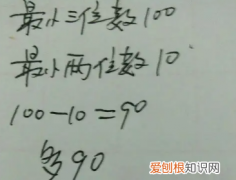 最小三位数100
最小两位数10
100-10=90
多90
爱刨根知识网